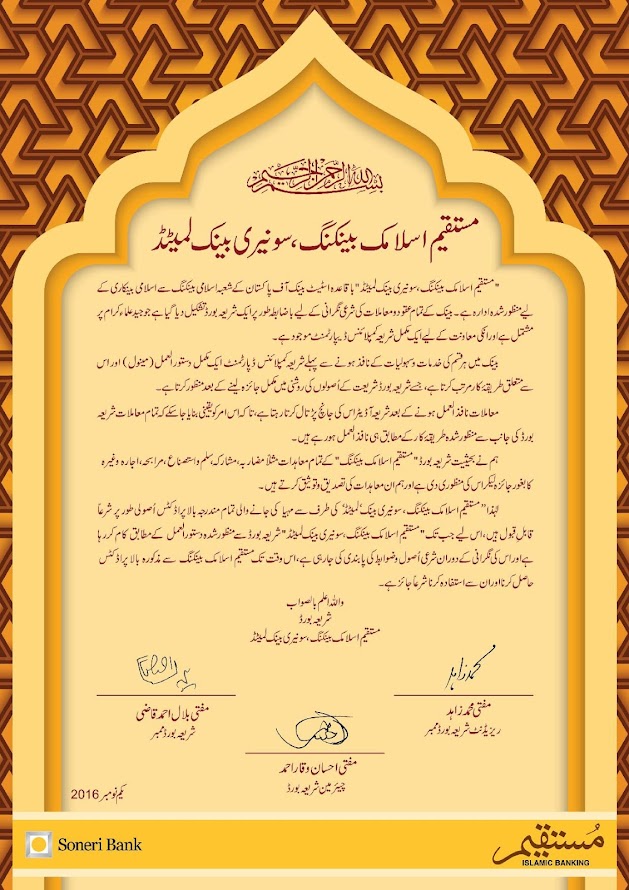 بسم الله الرحمن الرحيم
مستقیم اسلامک بینکنگ، سونیری بینک لمیٹڈ
"مستقیم اسلامک بینکنگ، سونیری بینک لمیٹڈ" باقاعدہ اسٹیٹ بینک آف پاکستان کے شعبہ اسلامی بینکنگ سے اسلامی بینکاری کے
لیے منظور شدہ ادارہ ہے۔ بینک کے تمام عقود و معاملات کی شرعی نگرانی کے لیے باضابطہ طور پر ایک شریعہ بورڈ تشکیل دیا گیا ہے جو جید علماء کرام پر
مشتمل ہے اور انکی معاونت کے لیے ایک مکمل شریعہ کمپلائنس ڈیپارٹمنٹ موجود ہے۔
بینک میں ہر قسم کی خدمات و سہولیات کے نافذ ہونے سے پہلے شریعہ کمپلائنس ڈپارٹمنٹ ایک مکمل دستور العمل (مینول) اور اس
سے متعلق طریقہ کار مرتب کرتا ہے، جسے شریعہ بورڈ شریعت کے اُصولوں کی روشنی میں مکمل جائزہ لینے کے بعد منظور کرتا ہے۔
معاملات نافذ العمل ہونے کے بعد شریعہ آڈیٹر اس کی جانچ پڑتال کرتا رہتا ہے، تاکہ اس امر کو یقینی بنایا جاسکے کہ تمام معاملات شریعہ
بورڈ کی جانب سے منظور شدہ طریقہ کار کے مطابق ہی نافذ العمل ہورہے ہیں۔
ہم نے بحیثیت شریعہ بورڈ "مستقیم اسلامک بینکنگ" کے تمام معاہدات مثلاً مضاربہ، مشارکہ، سلم و استصناع، مرابحہ، اجارہ وغیرہ
کا بغور جائزہ لیکر اس کی منظوری دی ہے اور ہم ان معاہدات کی تصدیق و توثیق کرتے ہیں۔
لہٰذا "مستقیم اسلامک بینکنگ، سونیری بینک لمیٹڈ" کی طرف سے مہیا کی جانے والی تمام مندرجہ بالا پراڈکٹس اُصولی طور پر شرعاً
قابل قبول ہیں، اس لیے جب تک "مستقیم اسلامک بینکنگ، سونیری بینک لمیٹڈ" شریعہ بورڈ سے منظور شدہ دستور العمل کے مطابق کام کر رہا
ہے اور اس کی نگرانی کے دوران شرعی اُصول و ضوابط کی پابندی کی جارہی ہے، اس وقت تک مستقیم اسلامک بینکنگ سے مذکورہ بالا پراڈکٹس
حاصل کرنا اور ان سے استفادہ کرنا شرعاً جائز ہے۔
واللہ اعلم بالصواب
شریعہ بورڈ
مستقیم اسلامک بینکنگ، سونیری بینک لمیٹڈ
محمد زاہد
مفتی محمد زاہد
ریزیڈنٹ شریعہ بورڈ ممبر
مفتی بلال احمد قاضی
شریعہ بورڈ ممبر
مفتی احسان وقار احمد
چیئرمین شریعہ بورڈ
یکم نومبر 2016
Soneri Bank
مُستقیم
ISLAMIC BANKING